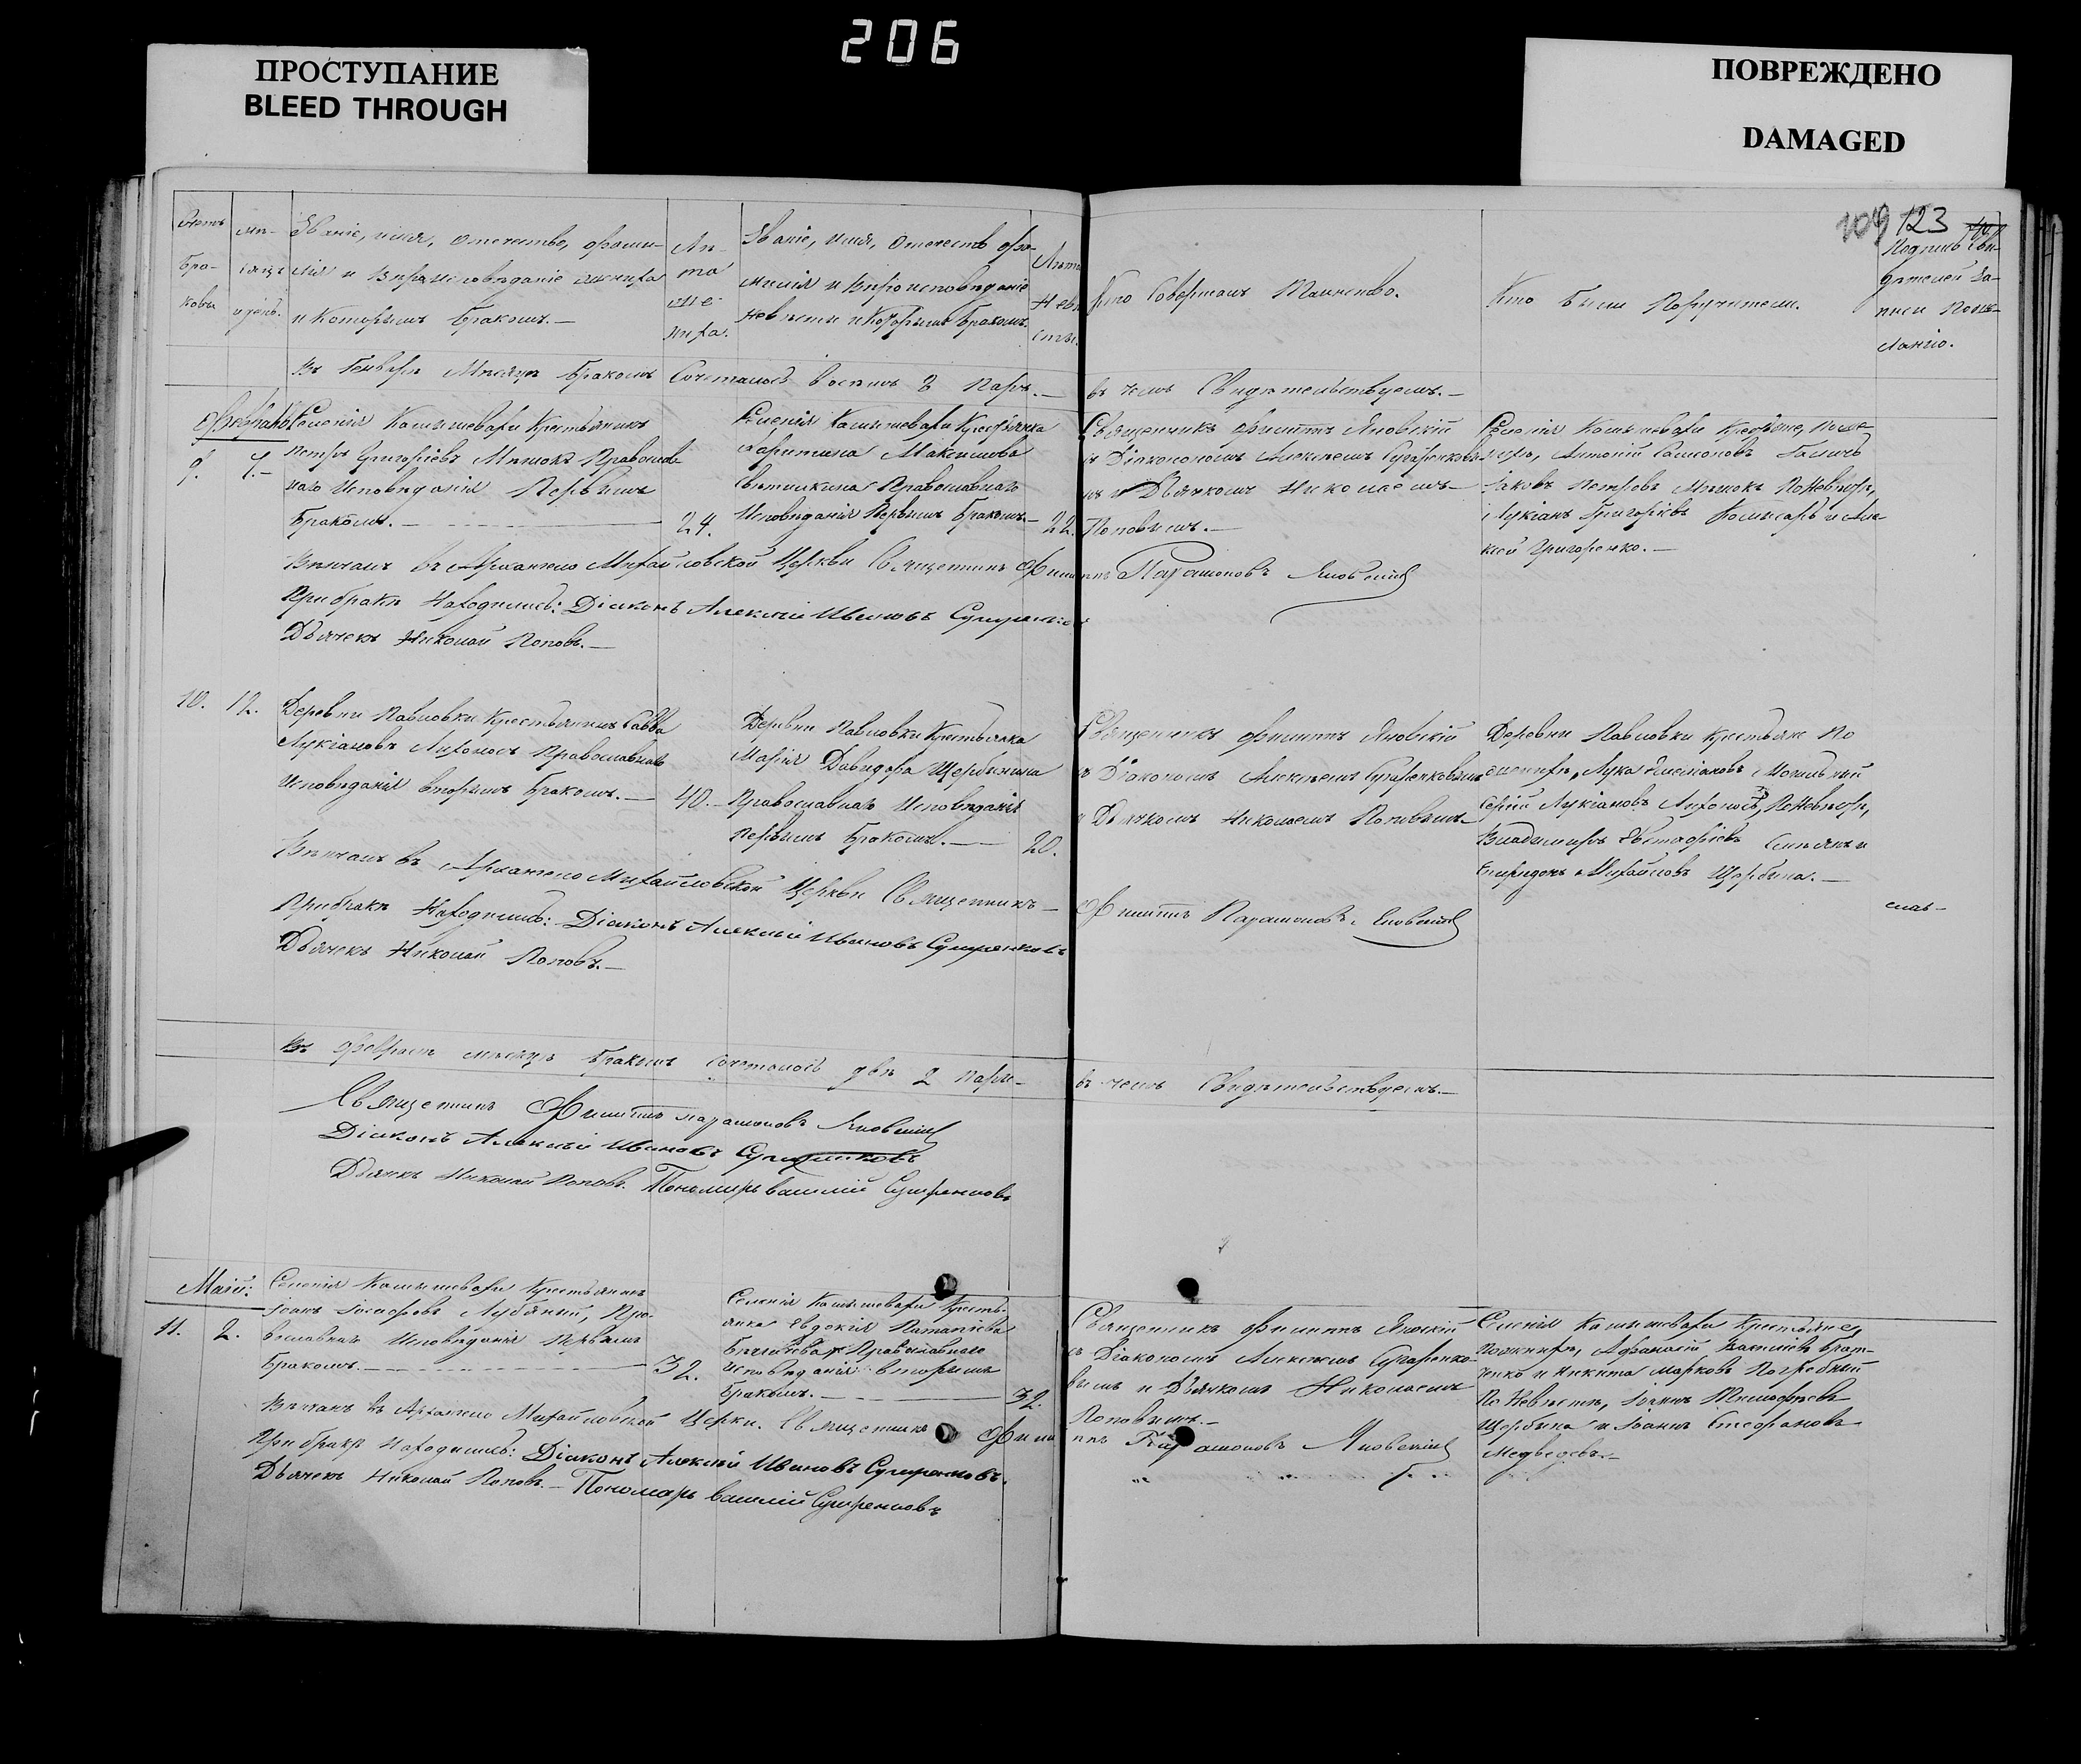 206
ПРОСТУПАНИЕ
BLEED THROUGH
ПОВРЕЖДЕНО
DAMAGED
109 123
Счетъ
бра-
ковъ
мѣ-
сяцъ
и день.
Званіе, имя, отечество, фами-
лія и вѣроисповѣданіе жениха
и которымъ бракомъ.—
Лѣ-
та
же-
ниха.
Званіе, имя, отечество фа-
милія и вѣроисповѣданіе
невѣсты и которымъ бракомъ.
Лѣта
Невѣ
сты.
Кто совершалъ таинство.
Кто были поручители.
Подпись сви-
дѣтелей за-
писи по же-
ланію.
Въ Генварѣ мѣсяцѣ бракомъ сочеталось восемь 8 паръ.— въ чемъ свидѣтельствуемъ.—
Февраль
9. 7.
Селенія Камышевахи крестьянинъ
Петръ Григорьевъ Мишокъ Православ-
наго исповѣданія первымъ
бракомъ.— 24.
Селенія Камышевахи крестьянка
Харитина Максимова
Православнаго
исповѣданія первымъ бракомъ.— 22.
Священникъ Филиппъ Яновскій
съ Діакономъ Алексѣемъ
и Дьячкомъ Николаемъ
Поповымъ.—
Селенія Камышевахи крестьяне, по же-
нихѣ, Антоній
Іаковъ Петровъ Мишокъ по невѣстѣ,
Лукіанъ Григорьевъ и Але-
ксѣй Григоренко.—
Вѣнчалъ въ Архангело Михайловской Церкви Священникъ Филиппъ Парамоновъ Яновскій
При бракѣ находились: Діаконъ Алексѣй Ивановъ
Дьячекъ Николай Поповъ.—
10. 12.
Деревни Павловки крестьянинъ Савва
Лукіановъ Лихоносъ Православнаго
исповѣданія вторымъ бракомъ.— 40.—
Деревни Павловки крестьянка
Марія Давидова Щербинина
Православнаго исповѣданія
первымъ бракомъ.— 20.
Священникъ Филиппъ Яновскій
съ Діакономъ Алексѣемъ
и Дьячкомъ Николаемъ Поповымъ.—
Деревни Павловки крестьяне по
женихѣ, Лука
Сергій Лукіановъ Лихоносъ, по невѣстѣ,
Владимиръ Евстафіевъ и
Спиридонъ Михайловъ Щербина.—
Вѣнчалъ въ Архангело Михайловской Церкви Священникъ— Филиппъ Парамоновъ Яновскій
При бракѣ находились: Діаконъ Алексѣй Ивановъ
Дьячекъ Николай Поповъ.—
Въ Февралѣ мѣсяцѣ бракомъ сочеталось двѣ 2 пары— въ чемъ свидѣтельствуемъ.—
Священникъ Филиппъ Парамоновъ Яновскій
Діаконъ Алексѣй Ивановъ
Дьячекъ Николай Поповъ. Пономарь Василій
Маій:
11. 2.
Селенія Камышевахи крестьянинъ
Іоанъ Іосифовъ Лубяный, Пра-
вославнаго исповѣданія первымъ
бракомъ.— 32.
Селенія Камышевахи кресть-
янка Евдокія Патапіева
Православнаго
исповѣданія вторымъ
бракомъ.— 32.
Священникъ Филиппъ Яновскій
съ Діакономъ Алексѣемъ
и Дьячкомъ Николаемъ
Поповымъ.—
Селенія Камышевахи крестьяне,
по женихѣ, Афанасій Василіевъ Брат-
ченко и Никита Марковъ Погребный
по невѣстѣ, Іоанъ Тимофѣевъ
Щербина и Іоанъ Стефановъ
Медведевъ.—
Вѣнчалъ въ Архангело Михайловской Церкви. Священникъ Филиппъ Парамоновъ Яновскій
При бракѣ находились: Діаконъ Алексѣй Ивановъ
Дьячекъ Николай Поповъ.— Пономарь Василій